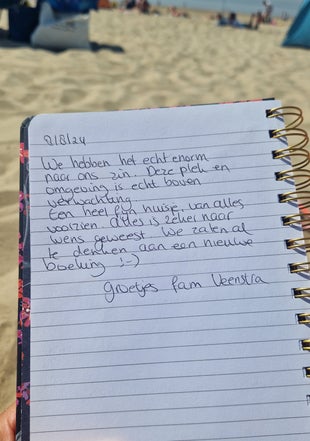 8/8/24
We hebben het echt enorm
naar ons zin. Deze plek en
omgeving is echt boven
verwachting
Een heel fijn huisje, van alles
voorzien. Alles is zeker naar
wens geweest. We zaten al
te denken aan een nieuwe
boeking :-)
Groetjes fam Veenstra